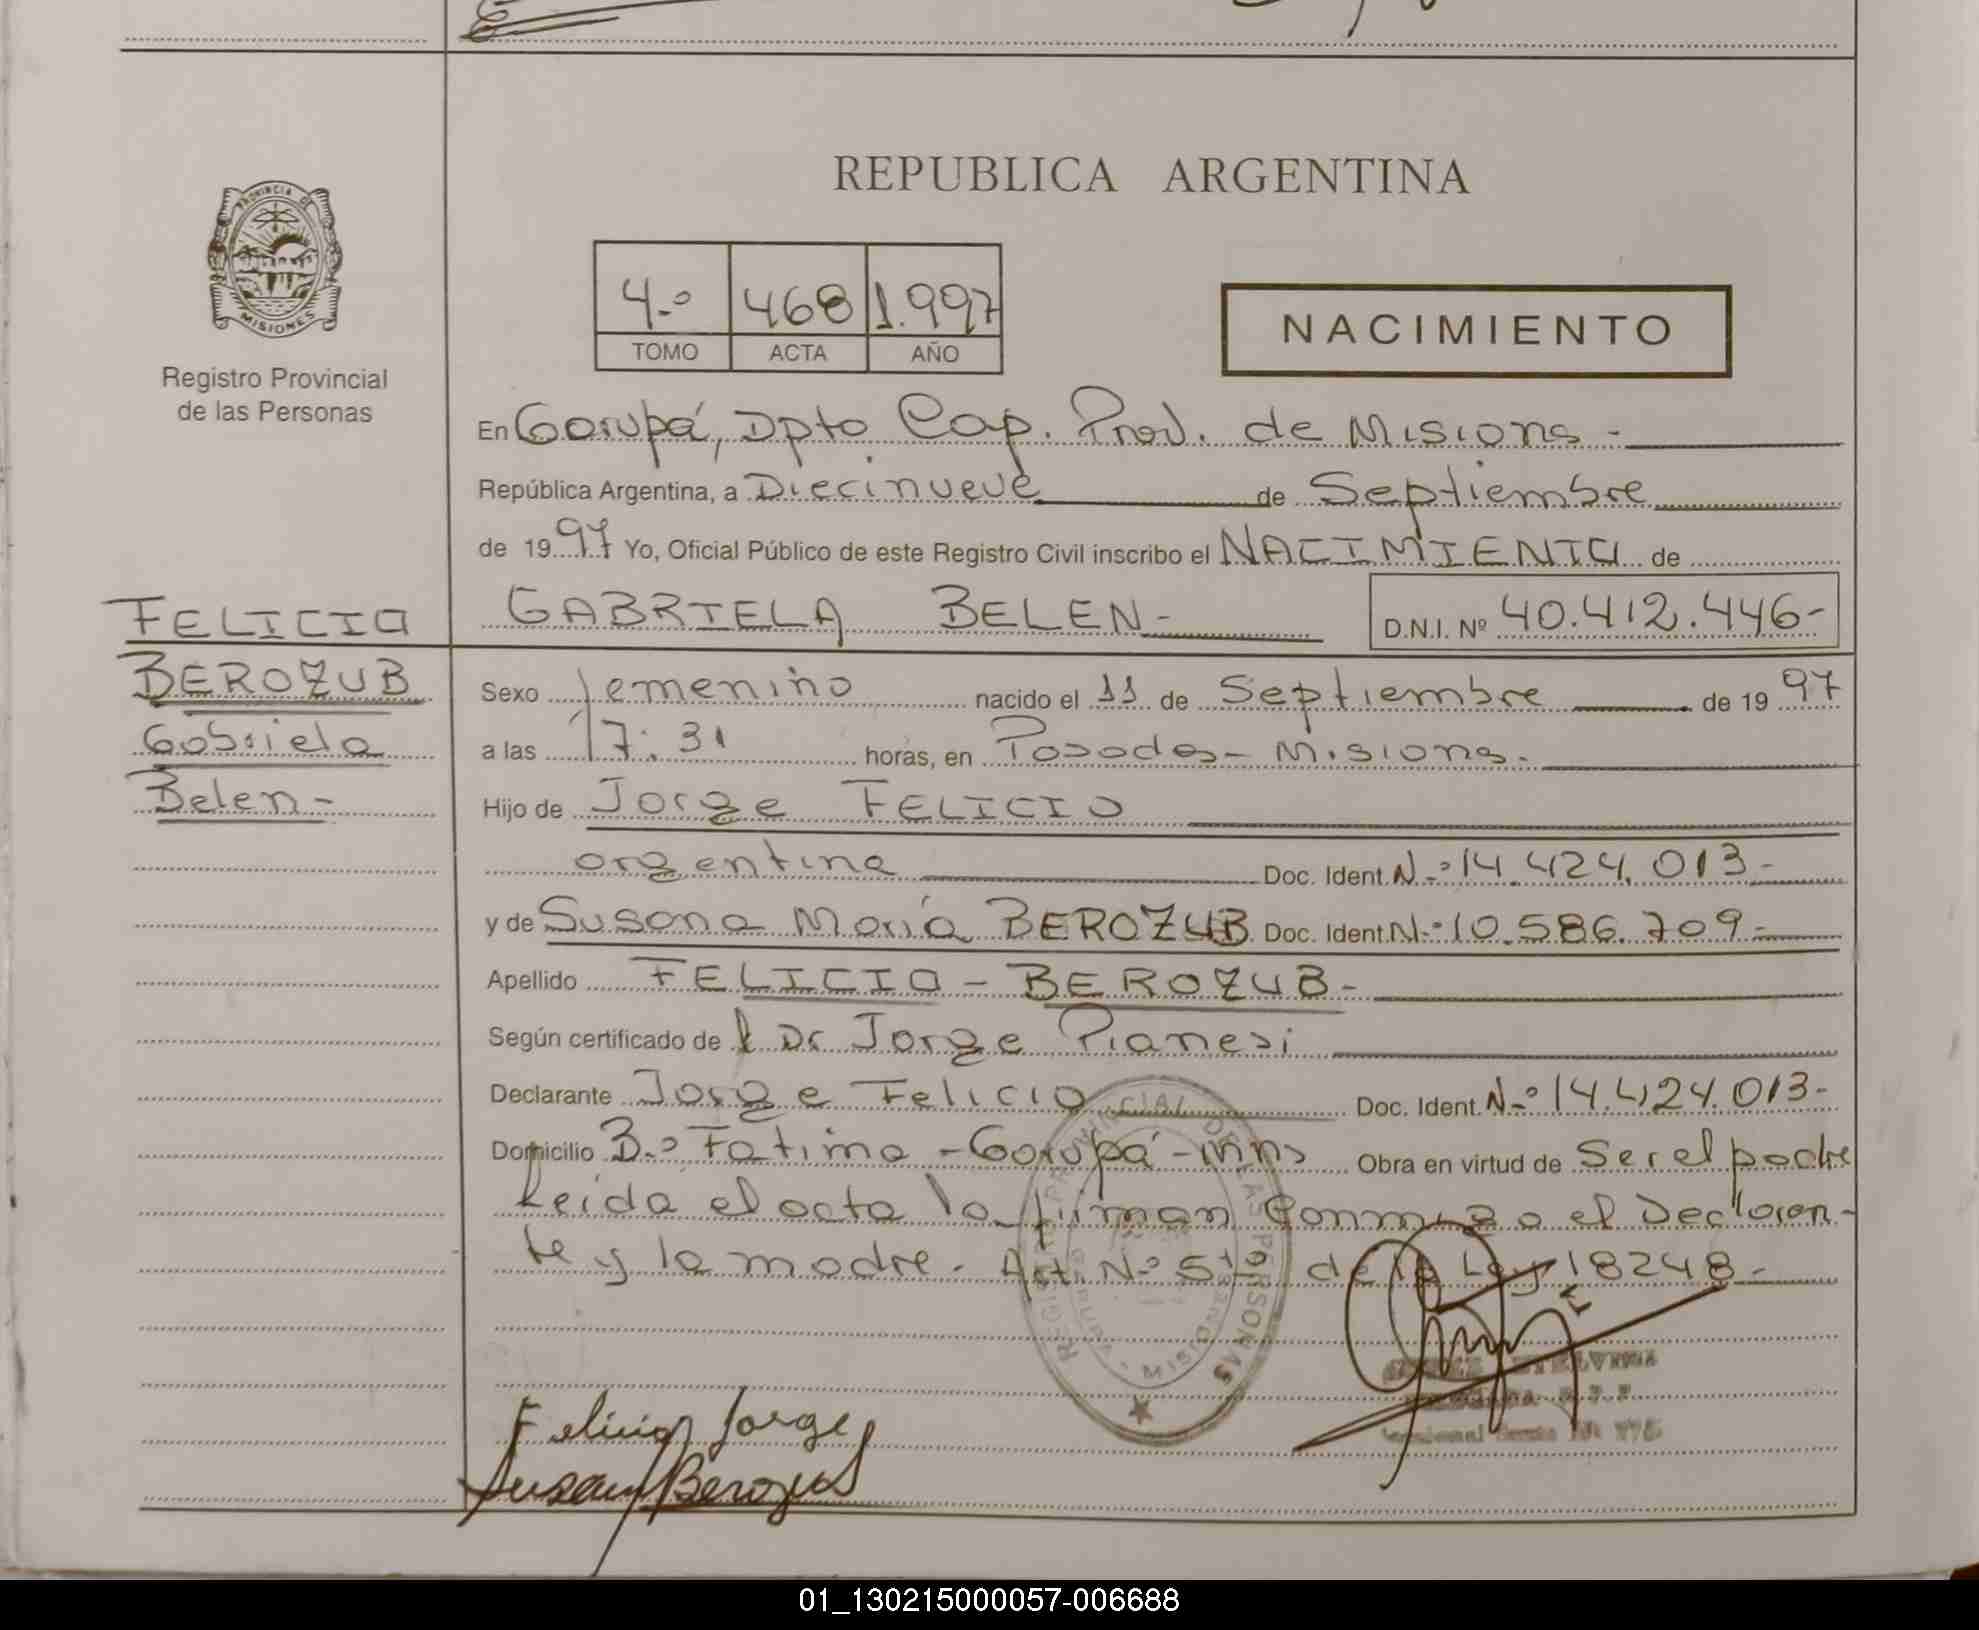 REPUBLICA ARGENTINA
PROVINCIA DE
MISIONES
Registro Provincial
de las Personas
4.º 468 1.997
TOMO ACTA AÑO
NACIMIENTO
En Garupá, Dpto Cap. Prov. de Misiones -
República Argentina, a Diecinueve de Septiembre
de 1997 Yo, Oficial Público de este Registro Civil inscribo el NACIMIENTO de
GABRIELA BELEN - D.N.I. Nº 40.412.446-
FELICIO
BEROZUB
Gabriela
Belen -
Sexo femenino nacido el 11 de Septiembre de 1997
a las 17:31 horas, en Posadas - Misiones.
Hijo de Jorge FELICIO
argentina Doc. Ident. N.º 14.424.013-
y de Susana María BEROZUB Doc. Ident. N.º 10.586.709-
Apellido FELICIO - BEROZUB -
Según certificado de l Dr Jorge Pianesi
Declarante Jorge Felicio Doc. Ident. N.º 14.424.013-
Domicilio B.º Fatima - Garupá - Mns Obra en virtud de Ser el padre
Leida el acta la firman Conmigo el Declaran-
te y la madre. Art. Nº 5to de la Ley 18248 -
REGISTRO PROVINCIAL DE LAS PERSONAS
GARUPA - MISIONES
Felicio Jorge
Susana Berozub
01_130215000057-006688